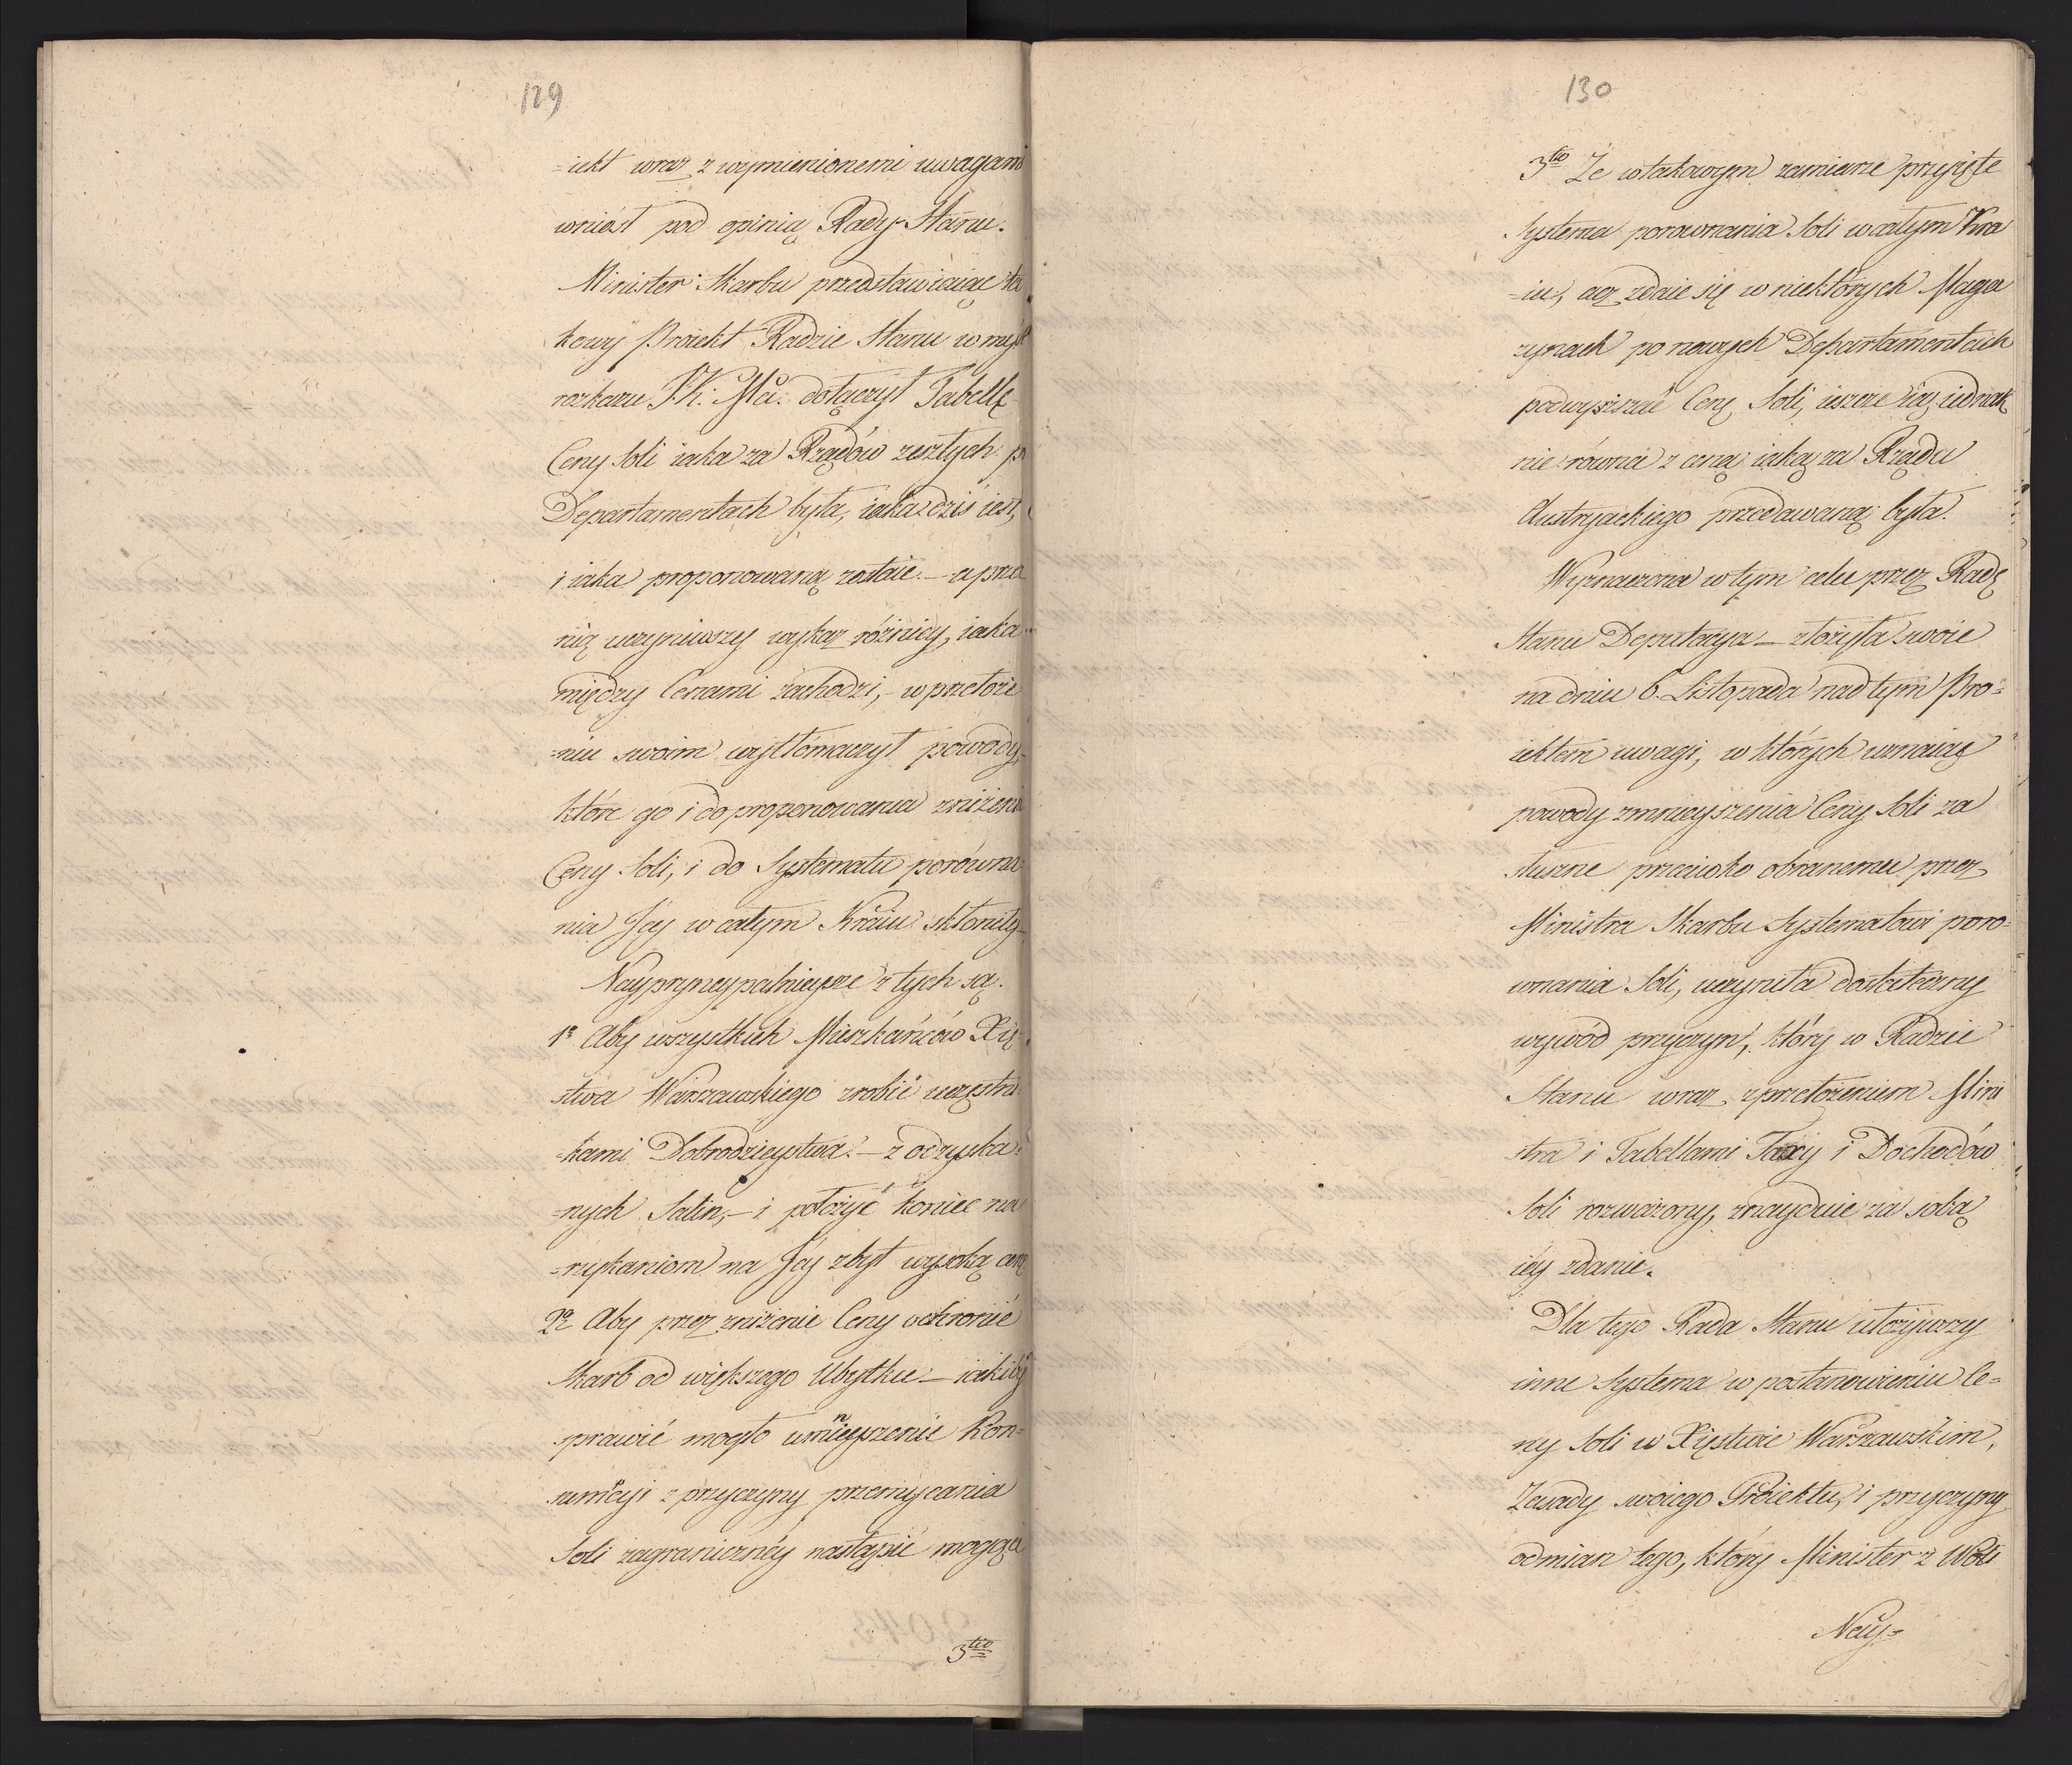 129
=iekt wraz z wymienionemi uwagami
wniósł pod opinią Rady Stanu.
Minister Skarbu przedstawiaiąc ta
kowy Proiekt Radzie Stanu w myśl
rozkazu J. K. Mci. dołączył Tabellę
Ceny Soli iaka za Rządów zeszłych po
Departamentach była, iaka dziś iest,
i iaka proponowaną zostaie. – a przez
nią uczyniwszy wykaz różnicy, iaka
między Cenami zachodzi, – w przełoże
=niu swoim wytłómaczył powody,
które go i do proponowania zniżenia
Ceny Soli, i do Systematu porówna
nia Jey w całym Kraiu skłoniły
Nayprzyncypalnieysze z tych są.
1º Aby wszystkich Mieszkańców Xię
stwa Warszawskiego zrobić uczęstni
=kami Dobrodzieystwa. – z odzyska=
=nych Salin, – i położyć koniec na
=rzykaniom na Jey zbyt wysoką cenę
2º Aby przez zniżenie Ceny ochronić
Skarb od większego Ubytku – iakiby
sprawić mogło umnieyszenie Kon=
sumcyi z przyczyny przemycania
Soli zagraniczney nastąpić mogące
3tio
130
3tio Że w takowym zamiarze przyięte
Systema porownania Soli w całym Kra
=iu, acz zdaie się w niektórych Maga
zynach po nowych Departamentach
podwyższać Cenę Soli, ieszcze ią iednak
nie równa z ceną iaką za Rządu
Austryackiego przedawaną była.
Wyznaczona w tym celu przez Radę
Stanu Deputacya – złożyła swoie
na dniu 6. Listopada nad tym Pro=
iektem uwagi, w których uznaiąc
powody zmnieyszenia Ceny Soli za
słuszne przeciwko obranemu przez
Ministra Skarbu Systematowi poro=
wnania Soli, uczyniła dostateczny
wywód przyczyn, który w Radzie
Stanu wraz z przełożeniem Mini
stra i Tabellami Taxy i Dochodów
Soli rozważony, znayduie za sobą
iey zdanie.
Dla tego Rada Stanu ułożywszy
inne Systema w postanowieniu Ce=
ny Soli w Xięstwie Warszawskim,
Zasady swoiego Proiektu, i przyczyny
odmian tego, który Minister z Woli
Nay=